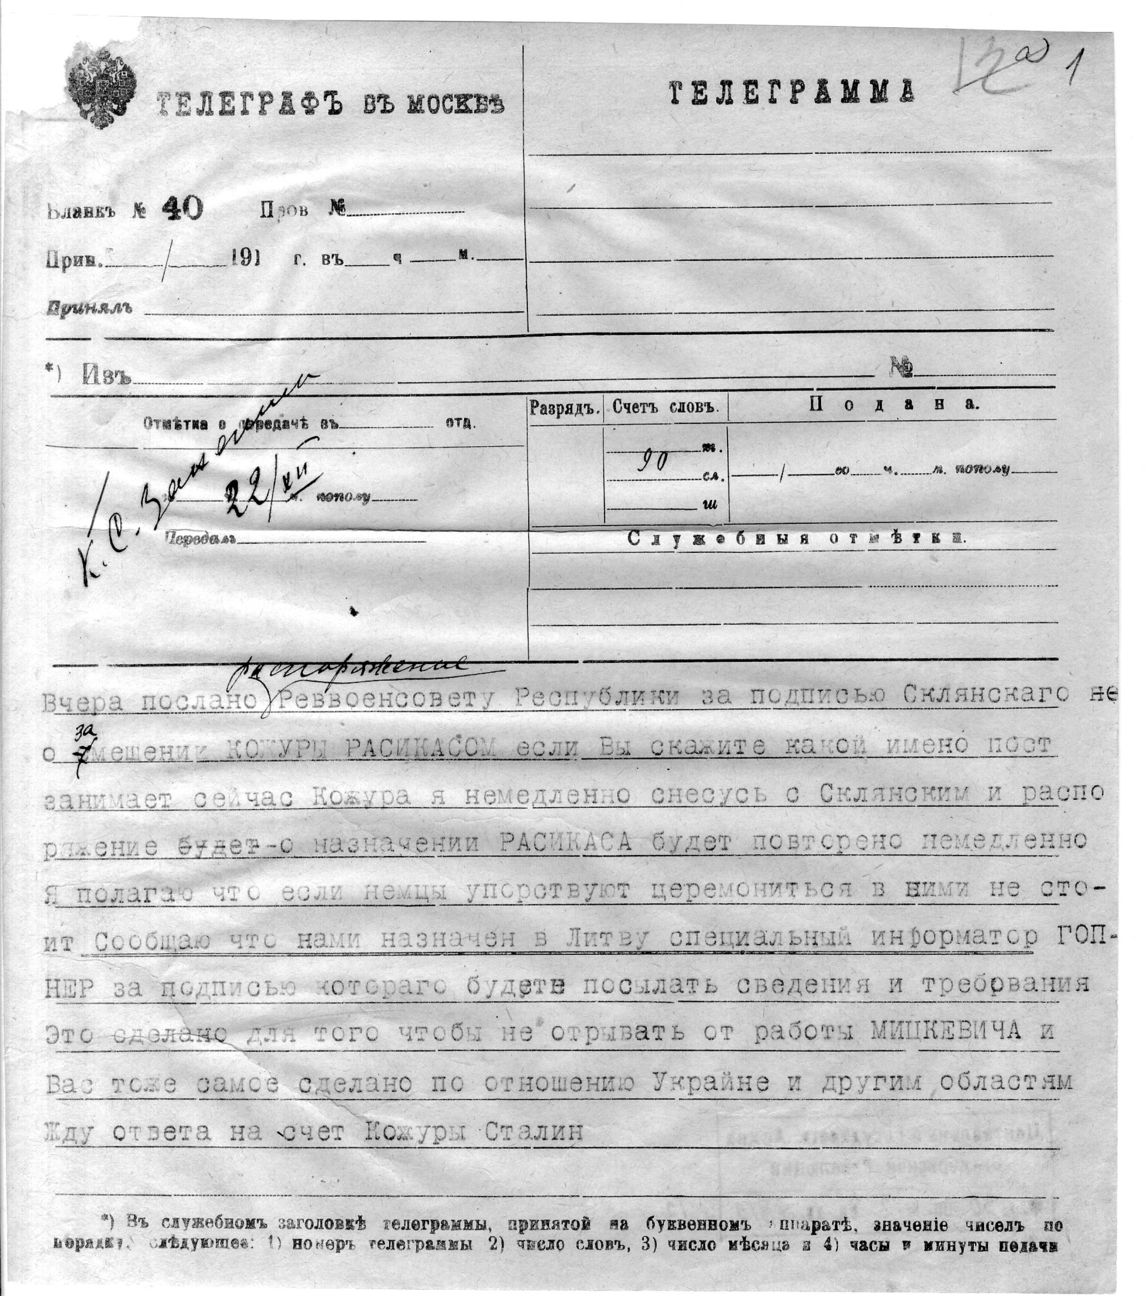 13 а) 1
ТЕЛЕГРАФЪ ВЪ МОСКВѢ
ТЕЛЕГРАММА
Бланкъ № 40 Пров №
Прин. / 191 г. въ ч м.
Принялъ
*) Изъ №
Отмѣтка о передачѣ въ отд.
Разрядъ. Счетъ словъ. Подана.
90 т.
сл.
ш
/ го ч. м. пополу
22/XII м. пополу
К. С.
Передалъ
Служебныя отмѣтки.
распоряжение
Вчера послано Реввоенсовету Республики за подписью Склянскаго не
за
о мещении КОЖУРЫ РАСИКАСОМ если Вы скажите какой имено пост
занимает сейчас Кожура я немедленно снесусь с Склянским и распо
ряжение будет-о назначении РАСИКАСА будет повторено немедленно
Я полагаю что если немцы упорствуют церемониться в ними не сто-
ит Сообщаю что нами назначен в Литву специальный информатор ГОП-
НЕР за подписью котораго будете посылать сведения и требования
Это сделано для того чтобы не отрывать от работы МИЦКЕВИЧА и
Вас тоже самое сделано по отношению Украйне и другим областям
Жду ответа на счет Кожуры Сталин
*) Въ служебномъ заголовкѣ телеграммы, принятой на буквенномъ аппаратѣ, значеніе чиселъ по
порядку слѣдующее: 1) номеръ телеграммы 2) число словъ, 3) число мѣсяца и 4) часы и минуты подачи